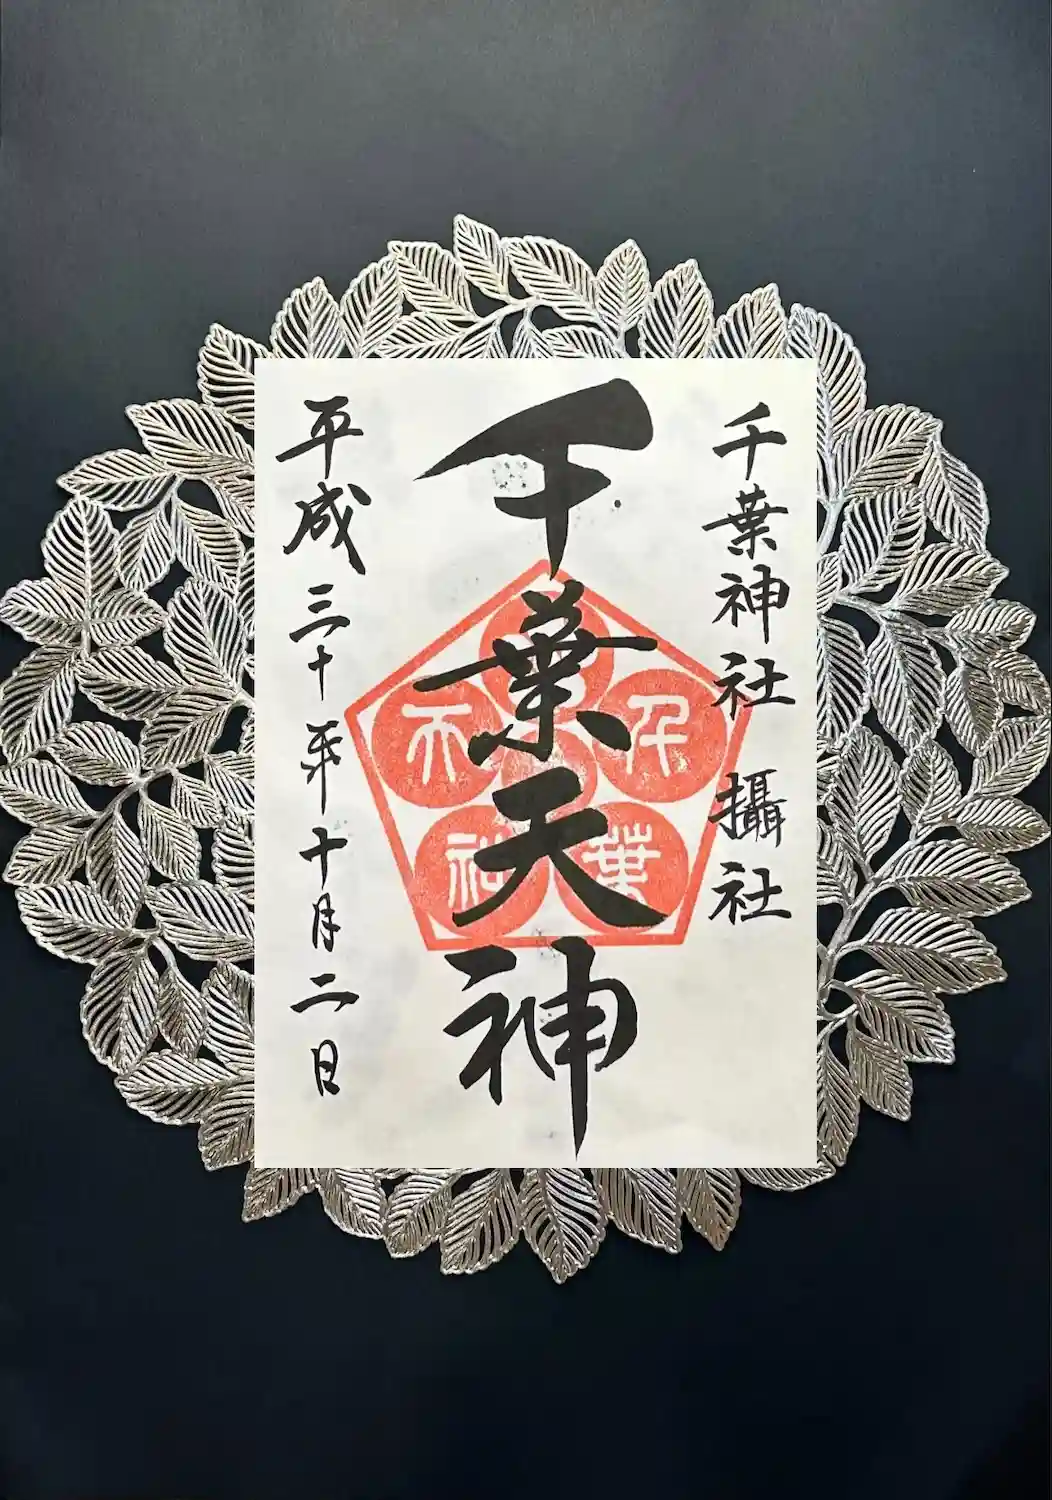 千葉神社 攝社
千葉天神
千葉天神
平成三十年十月二日